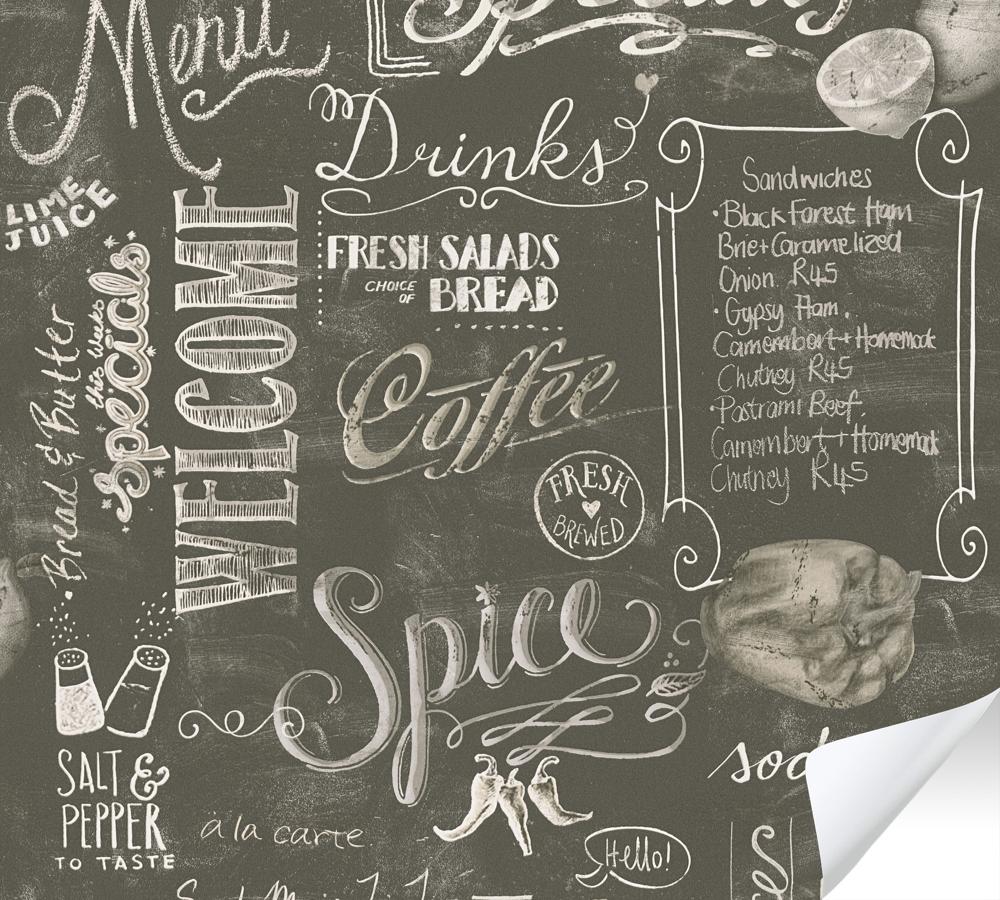 Menu
Drinks
LIME
JUICE
FRESH SALADS
CHOICE
OF
BREAD
Coffee
FRESH
BREWED
WELCOME
this weeks
specials
Bread & Butter
Sandwiches
· Black Forest Ham
Brie + Caramelized
Onion R45
· Gypsy Ham.
Camembert + Homemade
Chutney R45
· Pastrami Beef.
Camembert + Homemade
Chutney R45
Spice
SALT &
PEPPER
TO TASTE
à la carte
Hello!